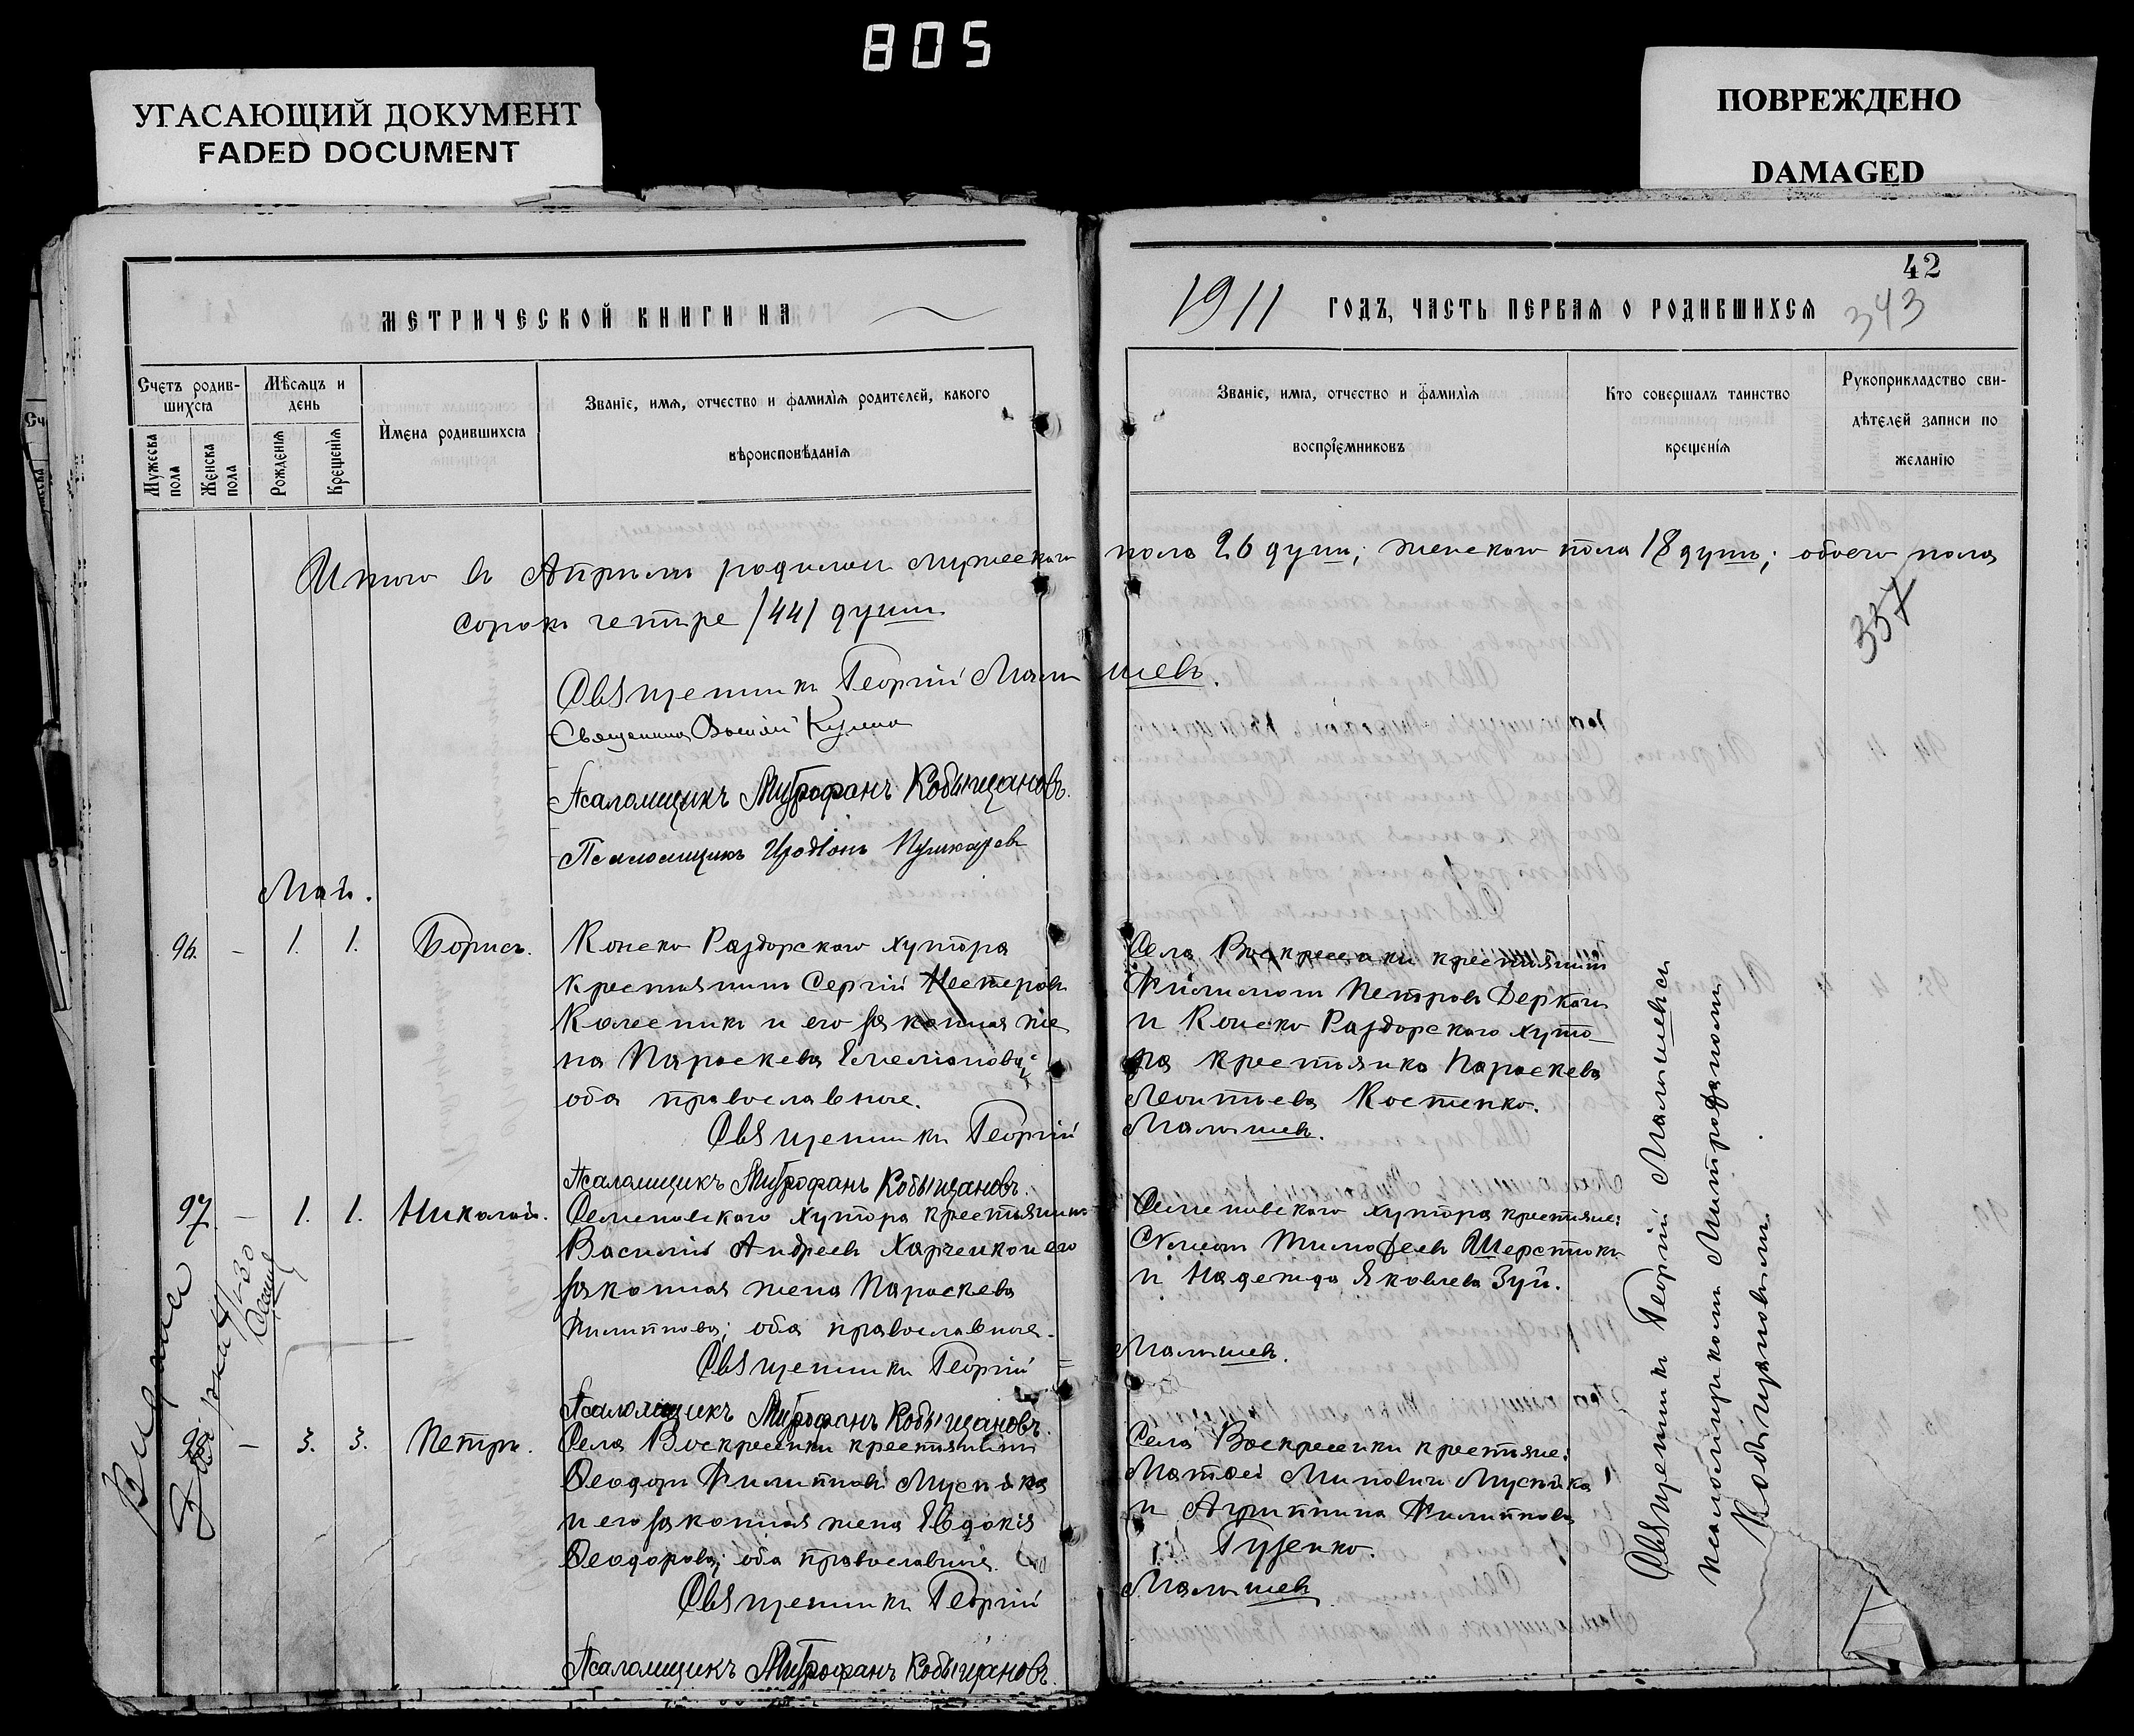 805
УГАСАЮЩИЙ ДОКУМЕНТ
FADED DOCUMENT
ПОВРЕЖДЕНО
DAMAGED
МЕТРИЧЕСКОЙ КНИГИ НА
1911 ГОДЪ, ЧАСТЬ ПЕРВАЯ О РОДИВШИХСЯ
42
343
Счетъ родив-
шихся
Мужеска пола
Женска пола
Мѣсяцъ и
день
Рожденія
Крещенія
Имена родившихся
Званіе, имя, отчество и фамилія родителей, какого
вѣроисповѣданія
Званіе, имя, отчество и фамилія
воспріемниковъ
Кто совершалъ таинство
крещенія
Рукоприкладство сви-
дѣтелей записи по
желанію
Итого въ Апрѣлѣ родилось мужескаго пола 26 душъ; женскаго пола 18 душъ; обоего пола
сорокъ четыре /44/ души
337
Священникъ Георгій Малышевъ.
Священникъ Василій
Псаломщикъ Митрофанъ Кобыщановъ.
Псаломщикъ Иродіонъ Пушкаревъ
Май.
96. - 1. 1. Борисъ.
Конско Раздорскаго хутора
крестьянинъ Сергій Нестеровъ
Колесникъ и его законная же
на Параскева Емеліанова;
оба православные.
Священникъ Георгій Малышевъ.
Псаломщикъ Митрофанъ Кобыщановъ.
Села Воскресенки крестьянинъ
Филимонъ Петровъ Деркачъ
и Конско Раздорскаго хуто-
ра крестьянка Параскева
Леонтьева Костенко.
97. - 1. 1. Николай.
Семеновскаго хутора крестьянинъ
Василій Андреевъ Харченко и его
законная жена Параскева
Филиппова; оба православные.
Священникъ Георгій Малышевъ.
Псаломщикъ Митрофанъ Кобыщановъ.
Семеновскаго хутора крестьяне:
Симеонъ Тимофеевъ Шерстюкъ
и Надежда Яковлева Зуй.
Видана
98. - 3. 3. Петръ.
Села Воскресенки крестьянинъ
Ѳеодоръ Филипповъ Мусійка
и его законная жена Евдокія
Ѳеодорова; оба православные.
Священникъ Георгій Малышевъ
Псаломщикъ Митрофанъ Кобыщановъ.
Села Воскресенки крестьяне:
Матѳей Миновичъ Мусійка
и Агрипина Филиппова
Гузенко.
Священникъ Георгій Малышевъ съ
псаломщикомъ Митрофаномъ
Кобыщановымъ.